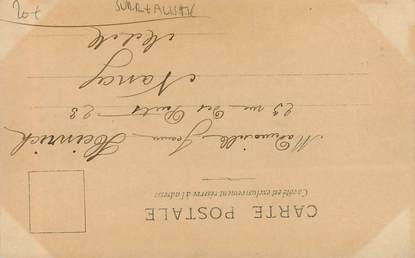 CARTE POSTALE
Ce côté est exclusivement réservé à l'adresse
Mademoiselle Jeanne Heinrich
23 rue des Ponts 23
Nancy
20€